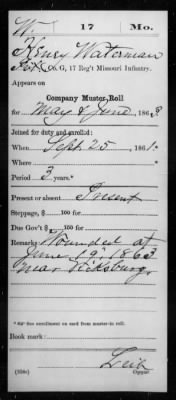 W. 17 Mo.
Henry Waterman
Co. G, 17 Reg't Missouri Infantry.
Appears on
Company Muster Roll
for May & June, 1863
Joined for duty and enrolled:
When Sept. 25, 1861.
Where
Period 3 years.*
Present or absent Present
Stoppage, $ 100 for
Due Gov't $ 100 for
Remarks: Wounded at
June 19, 1863
near Vicksburg
Book mark:
(358c) Copyist.